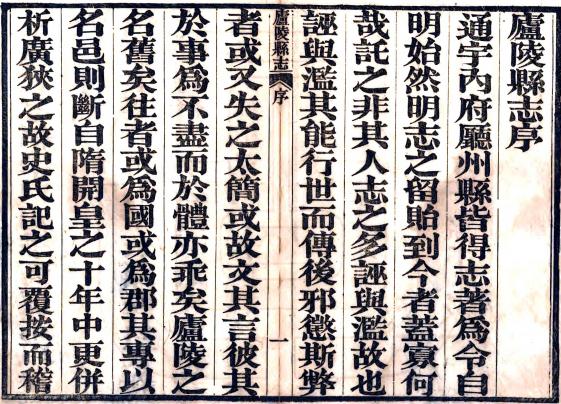 廬陵縣志序
通宇內府廳州縣皆得志著為令自
明始然明志之留貽到今者蓋寡何
哉託之非其人志之多誣與濫故也
誣與濫其能行世而傳後邪懲斯弊
廬陵縣志 序 一
者或又失之太簡或故文其言彼其
於事為不盡而於體亦乖矣廬陵之
名舊矣往者或為國或為郡其專以
名邑則斷自隋開皇之十年中更併
析廣狹之故史氏記之可覆按而稽